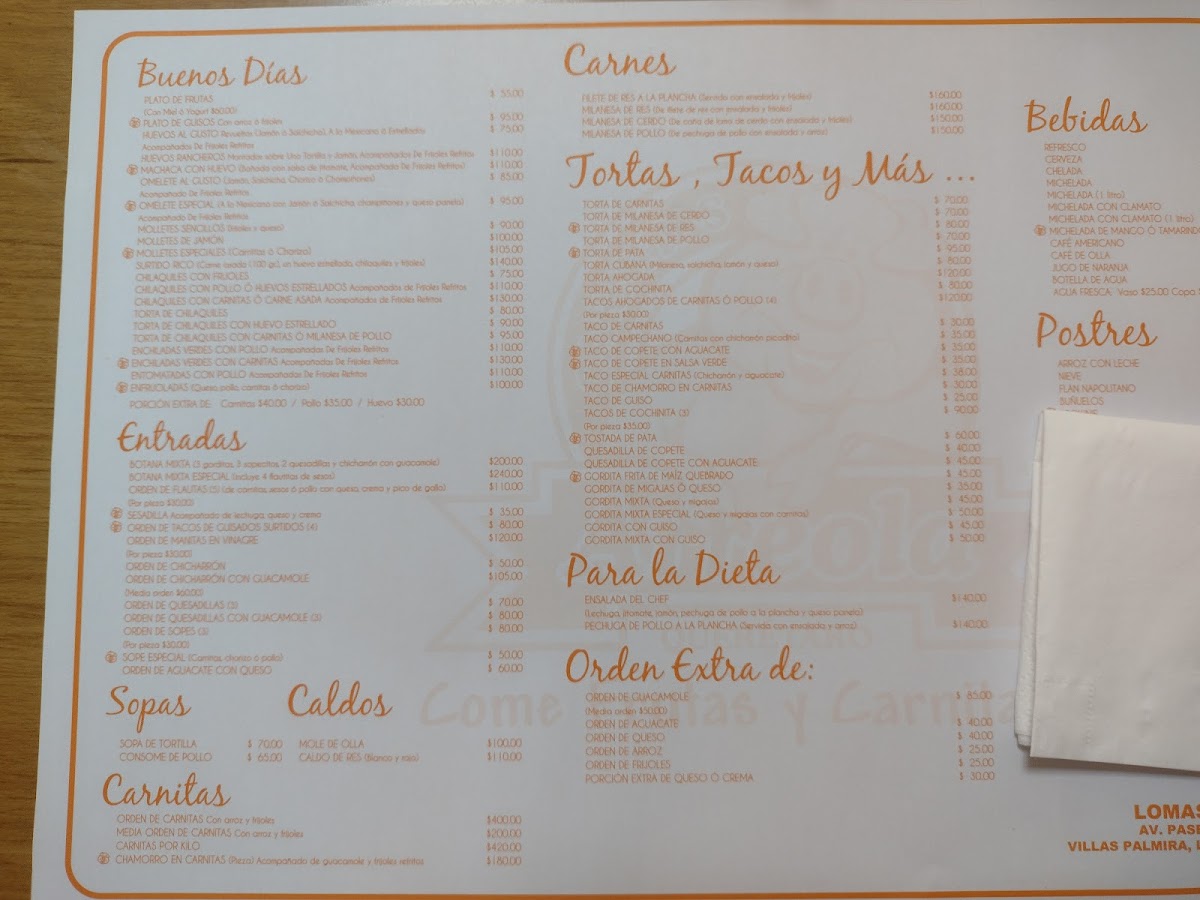 Buenos Días
PLATO DE FRUTAS $ 55.00
(Con Miel ó Yogurt $60.00)
PLATO DE GUISOS Con arroz ó frijoles $ 95.00
HUEVOS AL GUSTO Revueltos (Jamón ó Salchicha), A la Mexicana ó Estrellados $ 75.00
Acompañados De Frijoles Refritos
HUEVOS RANCHEROS Montados sobre Una Tortilla y Jamón, Acompañados De Frijoles Refritos $110.00
MACHACA CON HUEVO (Bañada con salsa de tomate, Acompañado De Frijoles Refritos) $110.00
OMELETE AL GUSTO (Jamón, Salchicha, Chorizo ó Champiñones) $ 85.00
Acompañado De Frijoles Refritos
OMELETE ESPECIAL (A la Mexicana con Jamón ó Salchicha champiñones y queso panela) $ 95.00
Acompañado De Frijoles Refritos
MOLLETES SENCILLOS (frijoles y queso) $ 90.00
MOLLETES DE JAMÓN $100.00
MOLLETES ESPECIALES (Carnitas ó Chorizo) $105.00
SURTIDO RICO (Carne asada (100 gr.), un huevo estrellado, chilaquiles y frijoles) $140.00
CHILAQUILES CON FRIJOLES $ 75.00
CHILAQUILES CON POLLO Ó HUEVOS ESTRELLADOS Acompañados de Frijoles Refritos $110.00
CHILAQUILES CON CARNITAS Ó CARNE ASADA Acompañados de Frijoles Refritos $130.00
TORTA DE CHILAQUILES $ 80.00
TORTA DE CHILAQUILES CON HUEVO ESTRELLADO $ 90.00
TORTA DE CHILAQUILES CON CARNITAS Ó MILANESA DE POLLO $ 95.00
ENCHILADAS VERDES CON POLLO Acompañadas De Frijoles Refritos $110.00
ENCHILADAS VERDES CON CARNITAS Acompañadas De Frijoles Refritos $130.00
ENTOMATADAS CON POLLO Acompañadas De Frijoles Refritos $110.00
ENFRIJOLADAS (Queso, pollo, carnitas ó chorizo) $100.00
PORCIÓN EXTRA DE: Carnitas $40.00 / Pollo $35.00 / Huevo $30.00
Entradas
BOTANA MIXTA (3 gorditas, 3 sopecitos, 2 quesadillas y chicharrón con guacamole) $200.00
BOTANA MIXTA ESPECIAL (Incluye 4 flautitas de sesos) $240.00
ORDEN DE FLAUTAS (5) (de carnitas, sesos ó pollo con queso, crema y pico de gallo) $110.00
(Por pieza $30.00)
SESADILLA Acompañado de lechuga, queso y crema $ 35.00
ORDEN DE TACOS DE GUISADOS SURTIDOS (4) $ 80.00
ORDEN DE MANITAS EN VINAGRE $120.00
(Por pieza $30.00)
ORDEN DE CHICHARRÓN $ 50.00
ORDEN DE CHICHARRÓN CON GUACAMOLE $105.00
(Media orden $60.00)
ORDEN DE QUESADILLAS (3) $ 70.00
ORDEN DE QUESADILLAS CON GUACAMOLE (3) $ 80.00
ORDEN DE SOPES (3) $ 80.00
(Por pieza $30.00)
SOPE ESPECIAL (Carnitas, chorizo ó pollo) $ 50.00
ORDEN DE AGUACATE CON QUESO $ 60.00
Sopas
SOPA DE TORTILLA $ 70.00
CONSOME DE POLLO $ 65.00
Caldos
MOLE DE OLLA $100.00
CALDO DE RES (Blanco y rojo) $110.00
Carnitas
ORDEN DE CARNITAS Con arroz y frijoles $400.00
MEDIA ORDEN DE CARNITAS Con arroz y frijoles $200.00
CARNITAS POR KILO $420.00
CHAMORRO EN CARNITAS (Pieza) Acompañado de guacamole y frijoles refritos $180.00
Carnes
FILETE DE RES A LA PLANCHA (Servida con ensalada y frijoles) $160.00
MILANESA DE RES (De filete de res con ensalada y frijoles) $160.00
MILANESA DE CERDO (De caña de lomo de cerdo con ensalada y frijoles) $150.00
MILANESA DE POLLO (De pechuga de pollo con ensalada y arroz) $150.00
Tortas , Tacos y Más ...
TORTA DE CARNITAS $ 70.00
TORTA DE MILANESA DE CERDO $ 70.00
TORTA DE MILANESA DE RES $ 80.00
TORTA DE MILANESA DE POLLO $ 70.00
TORTA DE PATA $ 95.00
TORTA CUBANA (Milanesa, salchicha, jamón y queso) $ 80.00
TORTA AHOGADA $120.00
TORTA DE COCHINITA $ 80.00
TACOS AHOGADOS DE CARNITAS Ó POLLO (4) $120.00
(Por pieza $30.00)
TACO DE CARNITAS $ 30.00
TACO CAMPECHANO (Carnitas con chicharrón picadito) $ 35.00
TACO DE COPETE CON AGUACATE $ 35.00
TACO DE COPETE EN SALSA VERDE $ 35.00
TACO ESPECIAL CARNITAS (Chicharrón y aguacate) $ 38.00
TACO DE CHAMORRO EN CARNITAS $ 30.00
TACO DE GUISO $ 25.00
TACOS DE COCHINITA (3) $ 90.00
(Por pieza $35.00)
TOSTADA DE PATA $ 60.00
QUESADILLA DE COPETE $ 40.00
QUESADILLA DE COPETE CON AGUACATE $ 45.00
GORDITA FRITA DE MAÍZ QUEBRADO $ 45.00
GORDITA DE MIGAJAS Ó QUESO $ 35.00
GORDITA MIXTA (Queso y migajas) $ 45.00
GORDITA MIXTA ESPECIAL (Queso y migajas con carnitas) $ 50.00
GORDITA CON GUISO $ 45.00
GORDITA MIXTA CON GUISO $ 50.00
Para la Dieta
ENSALADA DEL CHEF $140.00
(Lechuga, jitomate, jamón, pechuga de pollo a la plancha y queso panela)
PECHUGA DE POLLO A LA PLANCHA (Servida con ensalada y arroz) $140.00
Orden Extra de:
ORDEN DE GUACAMOLE $ 85.00
(Media orden $50.00)
ORDEN DE AGUACATE $ 40.00
ORDEN DE QUESO $ 40.00
ORDEN DE ARROZ $ 25.00
ORDEN DE FRIJOLES $ 25.00
PORCIÓN EXTRA DE QUESO Ó CREMA $ 30.00
Bebidas
REFRESCO
CERVEZA
CHELADA
MICHELADA
MICHELADA (1 litro)
MICHELADA CON CLAMATO
MICHELADA CON CLAMATO (1 litro)
MICHELADA DE MANGO Ó TAMARINDO
CAFÉ AMERICANO
CAFÉ DE OLLA
JUGO DE NARANJA
BOTELLA DE AGUA
AGUA FRESCA: Vaso $25.00 Copa
Postres
ARROZ CON LECHE
NIEVE
FLAN NAPOLITANO
BUÑUELOS
Come
y Carnitas
LOMAS
AV. PASE
VILLAS PALMIRA,